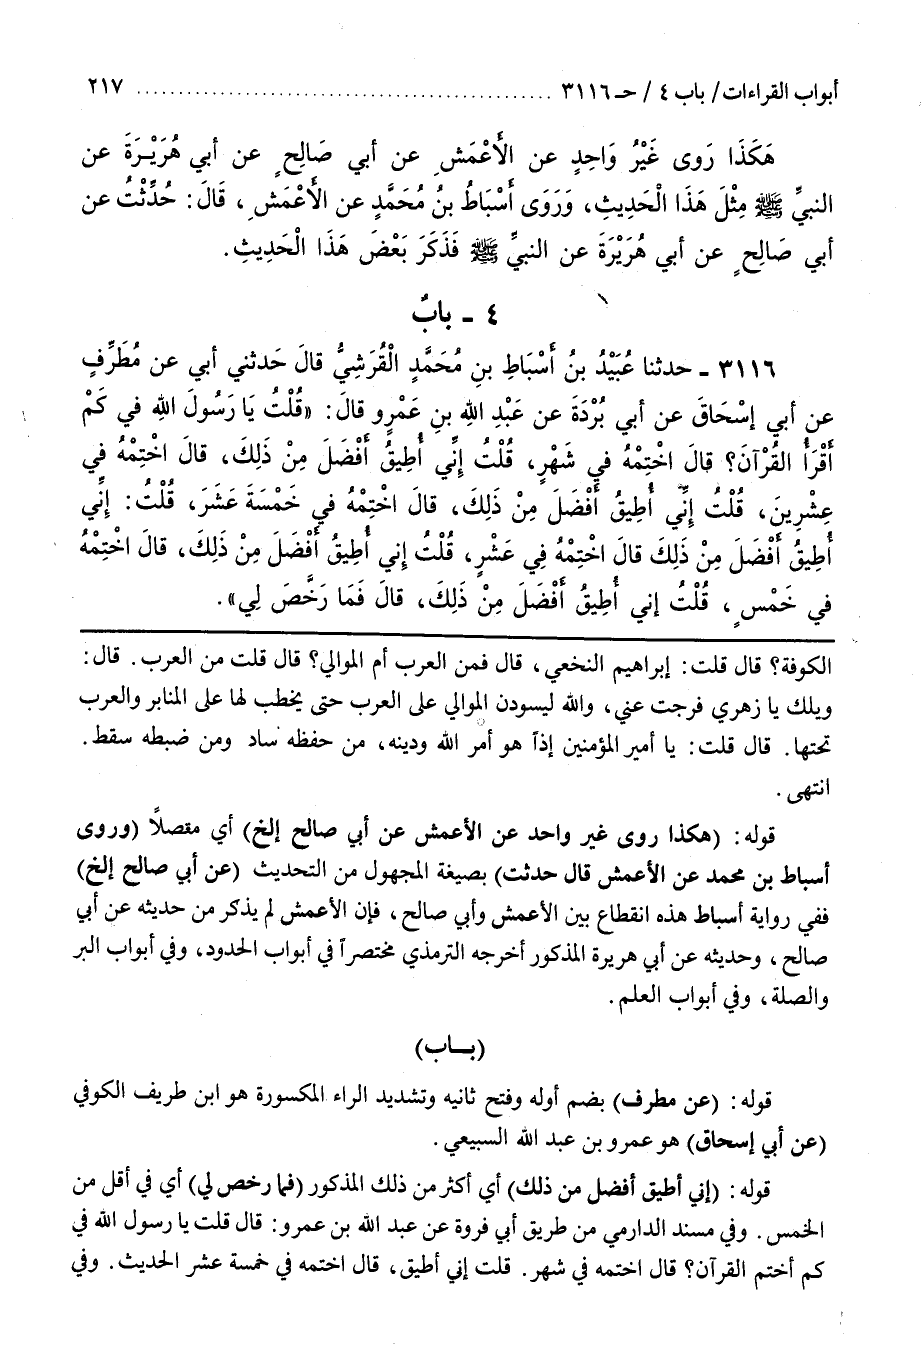 أبواب القراءات/ باب ٤/ حـ ٣١١٦ ................................................ ٢١٧
هَكَذَا رَوى غَيْرُ وَاحِدٍ عن الْأَعْمَشِ عن أبي صَالِحٍ عن أبي هُرَيْرَةَ عن
النبيِّ ﷺ مِثْلَ هَذَا الْحَدِيثِ، وَرَوَى أَسْبَاطُ بنُ مُحَمَّدٍ عن الأَعْمَشِ، قَالَ: حُدِّثْتُ عن
أبي صَالِحٍ عن أبي هُرَيْرَةَ عن النبيِّ ﷺ فَذَكَرَ بَعْضَ هَذَا الْحَدِيثِ.
٤ ـ بابٌ
٣١١٦ ـ حدثنا عُبَيْدُ بنُ أَسْبَاطِ بنِ مُحَمَّدٍ الْقُرَشِيُّ قالَ حَدثني أبي عن مُطَرِّفٍ
عن أبي إسْحَاقَ عن أبي بُرْدَةَ عن عَبْدِ اللهِ بنِ عَمْرٍو قالَ: «قُلْتُ يَا رَسُولَ اللهِ في كَمْ
أَقْرَأُ القُرْآنَ؟ قالَ اخْتِمْهُ في شَهْرٍ، قُلْتُ إنِّي أُطِيقُ أَفْضَلَ مِنْ ذَلِكَ، قالَ اخْتِمْهُ في
عِشْرِينَ، قُلْتُ إنِّي أُطِيقُ أَفْضَلَ مِنْ ذَلِكَ، قالَ اخْتِمْهُ في خَمْسَةَ عَشَرَ، قُلْتُ: إنِّي
أُطِيقُ أَفْضَلَ مِنْ ذَلِكَ قالَ اخْتِمْهُ فِي عَشْرٍ، قُلْتُ إني أُطِيقُ أَفْضَلَ مِنْ ذَلِكَ، قالَ اخْتِمْهُ
في خَمْسٍ، قُلْتُ إني أُطِيقُ أَفْضَلَ مِنْ ذَلِكَ، قالَ فَمَا رَخَّصَ لِي».
الكوفة؟ قال قلت: إبراهيم النخعي، قال فمن العرب أم الموالي؟ قال قلت من العرب. قال:
ويلك يا زهري فرجت عني، والله ليسودن الموالي على العرب حتى يخطب لها على المنابر والعرب
تحتها. قال قلت: يا أمير المؤمنين إذاً هو أمر الله ودينه، من حفظه ساد ومن ضبطه سقط.
انتهى.
قوله: (هكذا روى غير واحد عن الأعمش عن أبي صالح إلخ) أي متصلاً (وروى
أسباط بن محمد عن الأعمش قال حدثت) بصيغة المجهول من التحديث (عن أبي صالح إلخ)
ففي رواية أسباط هذه انقطاع بين الأعمش وأبي صالح، فإن الأعمش لم يذكر من حديثه عن أبي
صالح، وحديثه عن أبي هريرة المذكور أخرجه الترمذي مختصراً في أبواب الحدود، وفي أبواب البر
والصلة، وفي أبواب العلم.
(بـاب)
قوله: (عن مطرف) بضم أوله وفتح ثانيه وتشديد الراء المكسورة هو ابن طريف الكوفي
(عن أبي إسحاق) هو عمرو بن عبد الله السبيعي.
قوله: (إني أطيق أفضل من ذلك) أي أكثر من ذلك المذكور (فما رخص لي) أي في أقل من
الخمس. وفي مسند الدارمي من طريق أبي فروة عن عبد الله بن عمرو: قال قلت يا رسول الله في
كم أختم القرآن؟ قال اختمه في شهر. قلت إني أطيق، قال اختمه في خمسة عشر الحديث. وفي